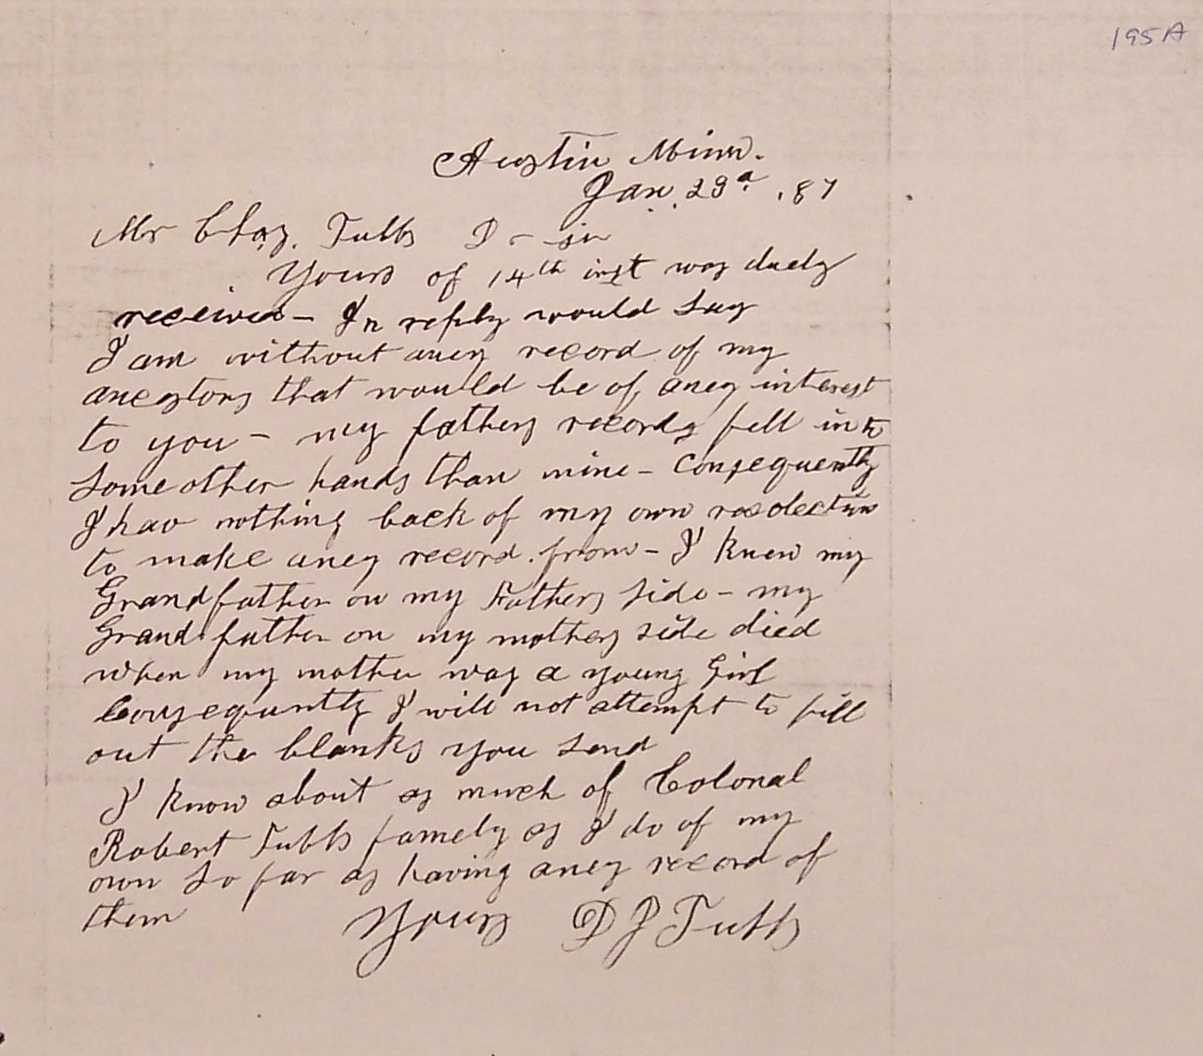 195A
Austin Minn.
Jan. 29ᵈ. '87
Mr Chas. Tubbs D - sir
Yours of 14th inst was duely
received - In reply would say
I am without aney record of my
ancestors that would be of aney interest
to you - my fathers records fell into
some other hands than mine - Consequently
I hav nothing back of my own recolection
to make aney record from - I knew my
Grandfather on my Fathers side - my
Grandfather on my mothers side died
when my mother was a young Girl
Consequently I will not attempt to fill
out the blanks you send
I know about as much of Colonal
Robert Tubbs famely as I do of my
own so far as having aney record of
them Yours D J Tubbs